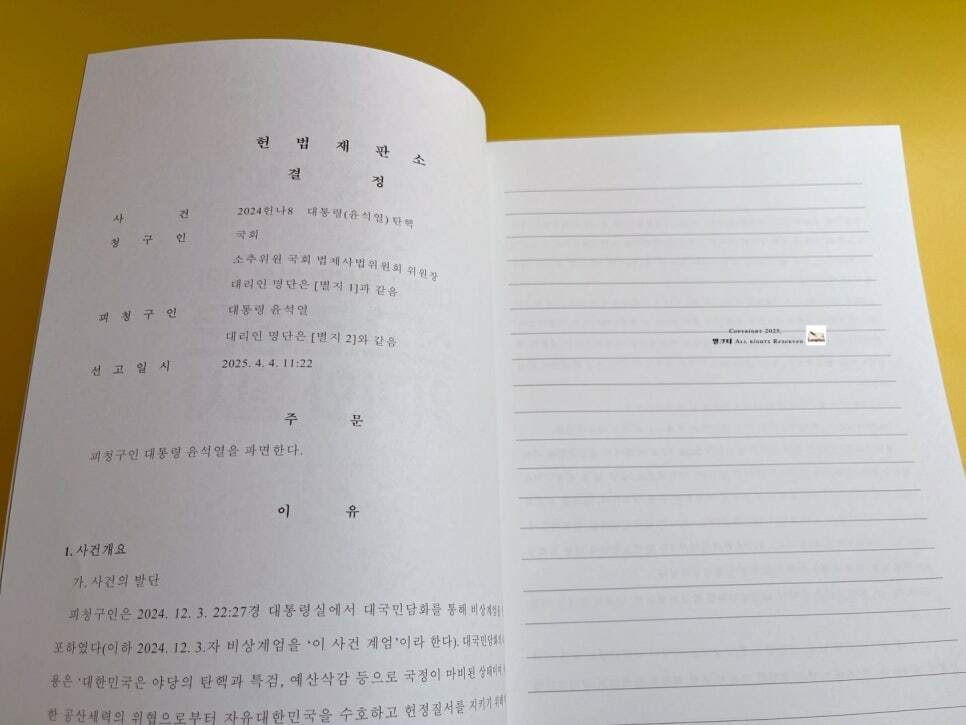 헌 법 재 판 소
결 정
사 건 2024헌나8 대통령(윤석열) 탄핵
청 구 인 국회
소추위원 국회 법제사법위원회 위원장
대리인 명단은 [별지 1]과 같음
피 청 구 인 대통령 윤석열
대리인 명단은 [별지 2]와 같음
선 고 일 시 2025. 4. 4. 11:22
주 문
피청구인 대통령 윤석열을 파면한다.
이 유
1. 사건개요
가. 사건의 발단
피청구인은 2024. 12. 3. 22:27경 대통령실에서 대국민담화를 통해 비상계엄을
포하였다(이하 2024. 12. 3.자 비상계엄을 ‘이 사건 계엄’이라 한다). 대국민담화의
용은 ‘대한민국은 야당의 탄핵과 특검, 예산삭감 등으로 국정이 마비된 상태이며,
한 공산세력의 위협으로부터 자유대한민국을 수호하고 헌정질서를 지키기 위해
COPYRIGHT 2025.
ALL RIGHTS RESERVED